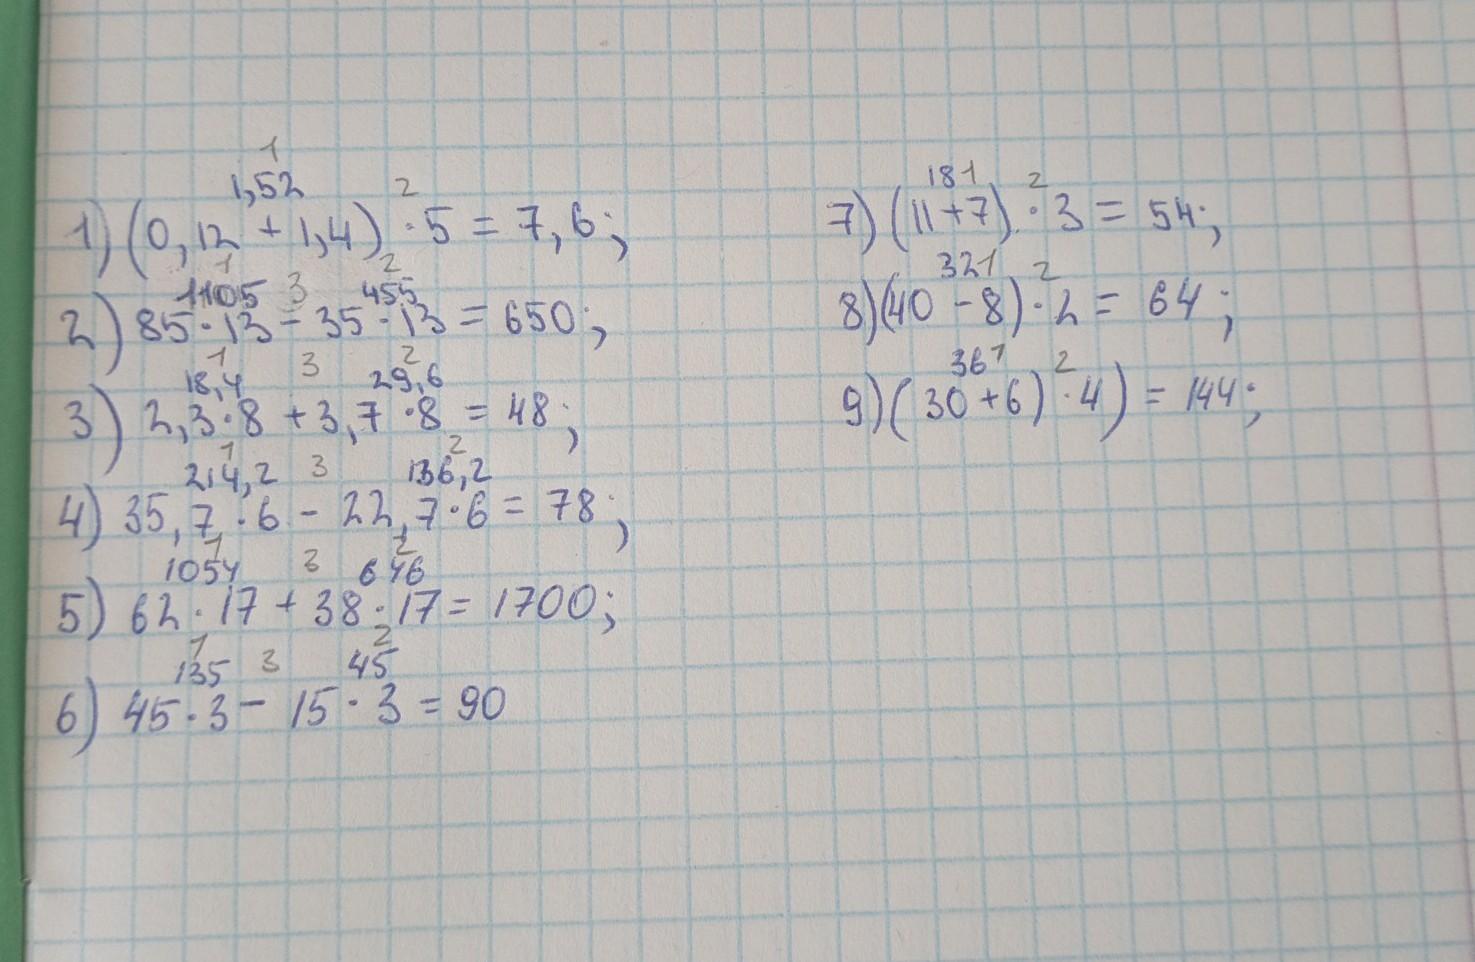 1
1,52 2
1) (0,12 + 1,4) · 5 = 7,6;
1 2
1105 3 455
2) 85 · 13 - 35 · 13 = 650;
1 3 2
18,4 29,6
3) 2,3 · 8 + 3,7 · 8 = 48;
1 2
214,2 3 136,2
4) 35,7 · 6 - 22,7 · 6 = 78;
1 2
1054 3 646
5) 62 · 17 + 38 · 17 = 1700;
1 2
135 3 45
6) 45 · 3 - 15 · 3 = 90
18 1 2
7) (11 + 7) · 3 = 54;
32 1 2
8) (40 - 8) · 2 = 64;
36 1 2
9) (30 + 6) · 4) = 144;